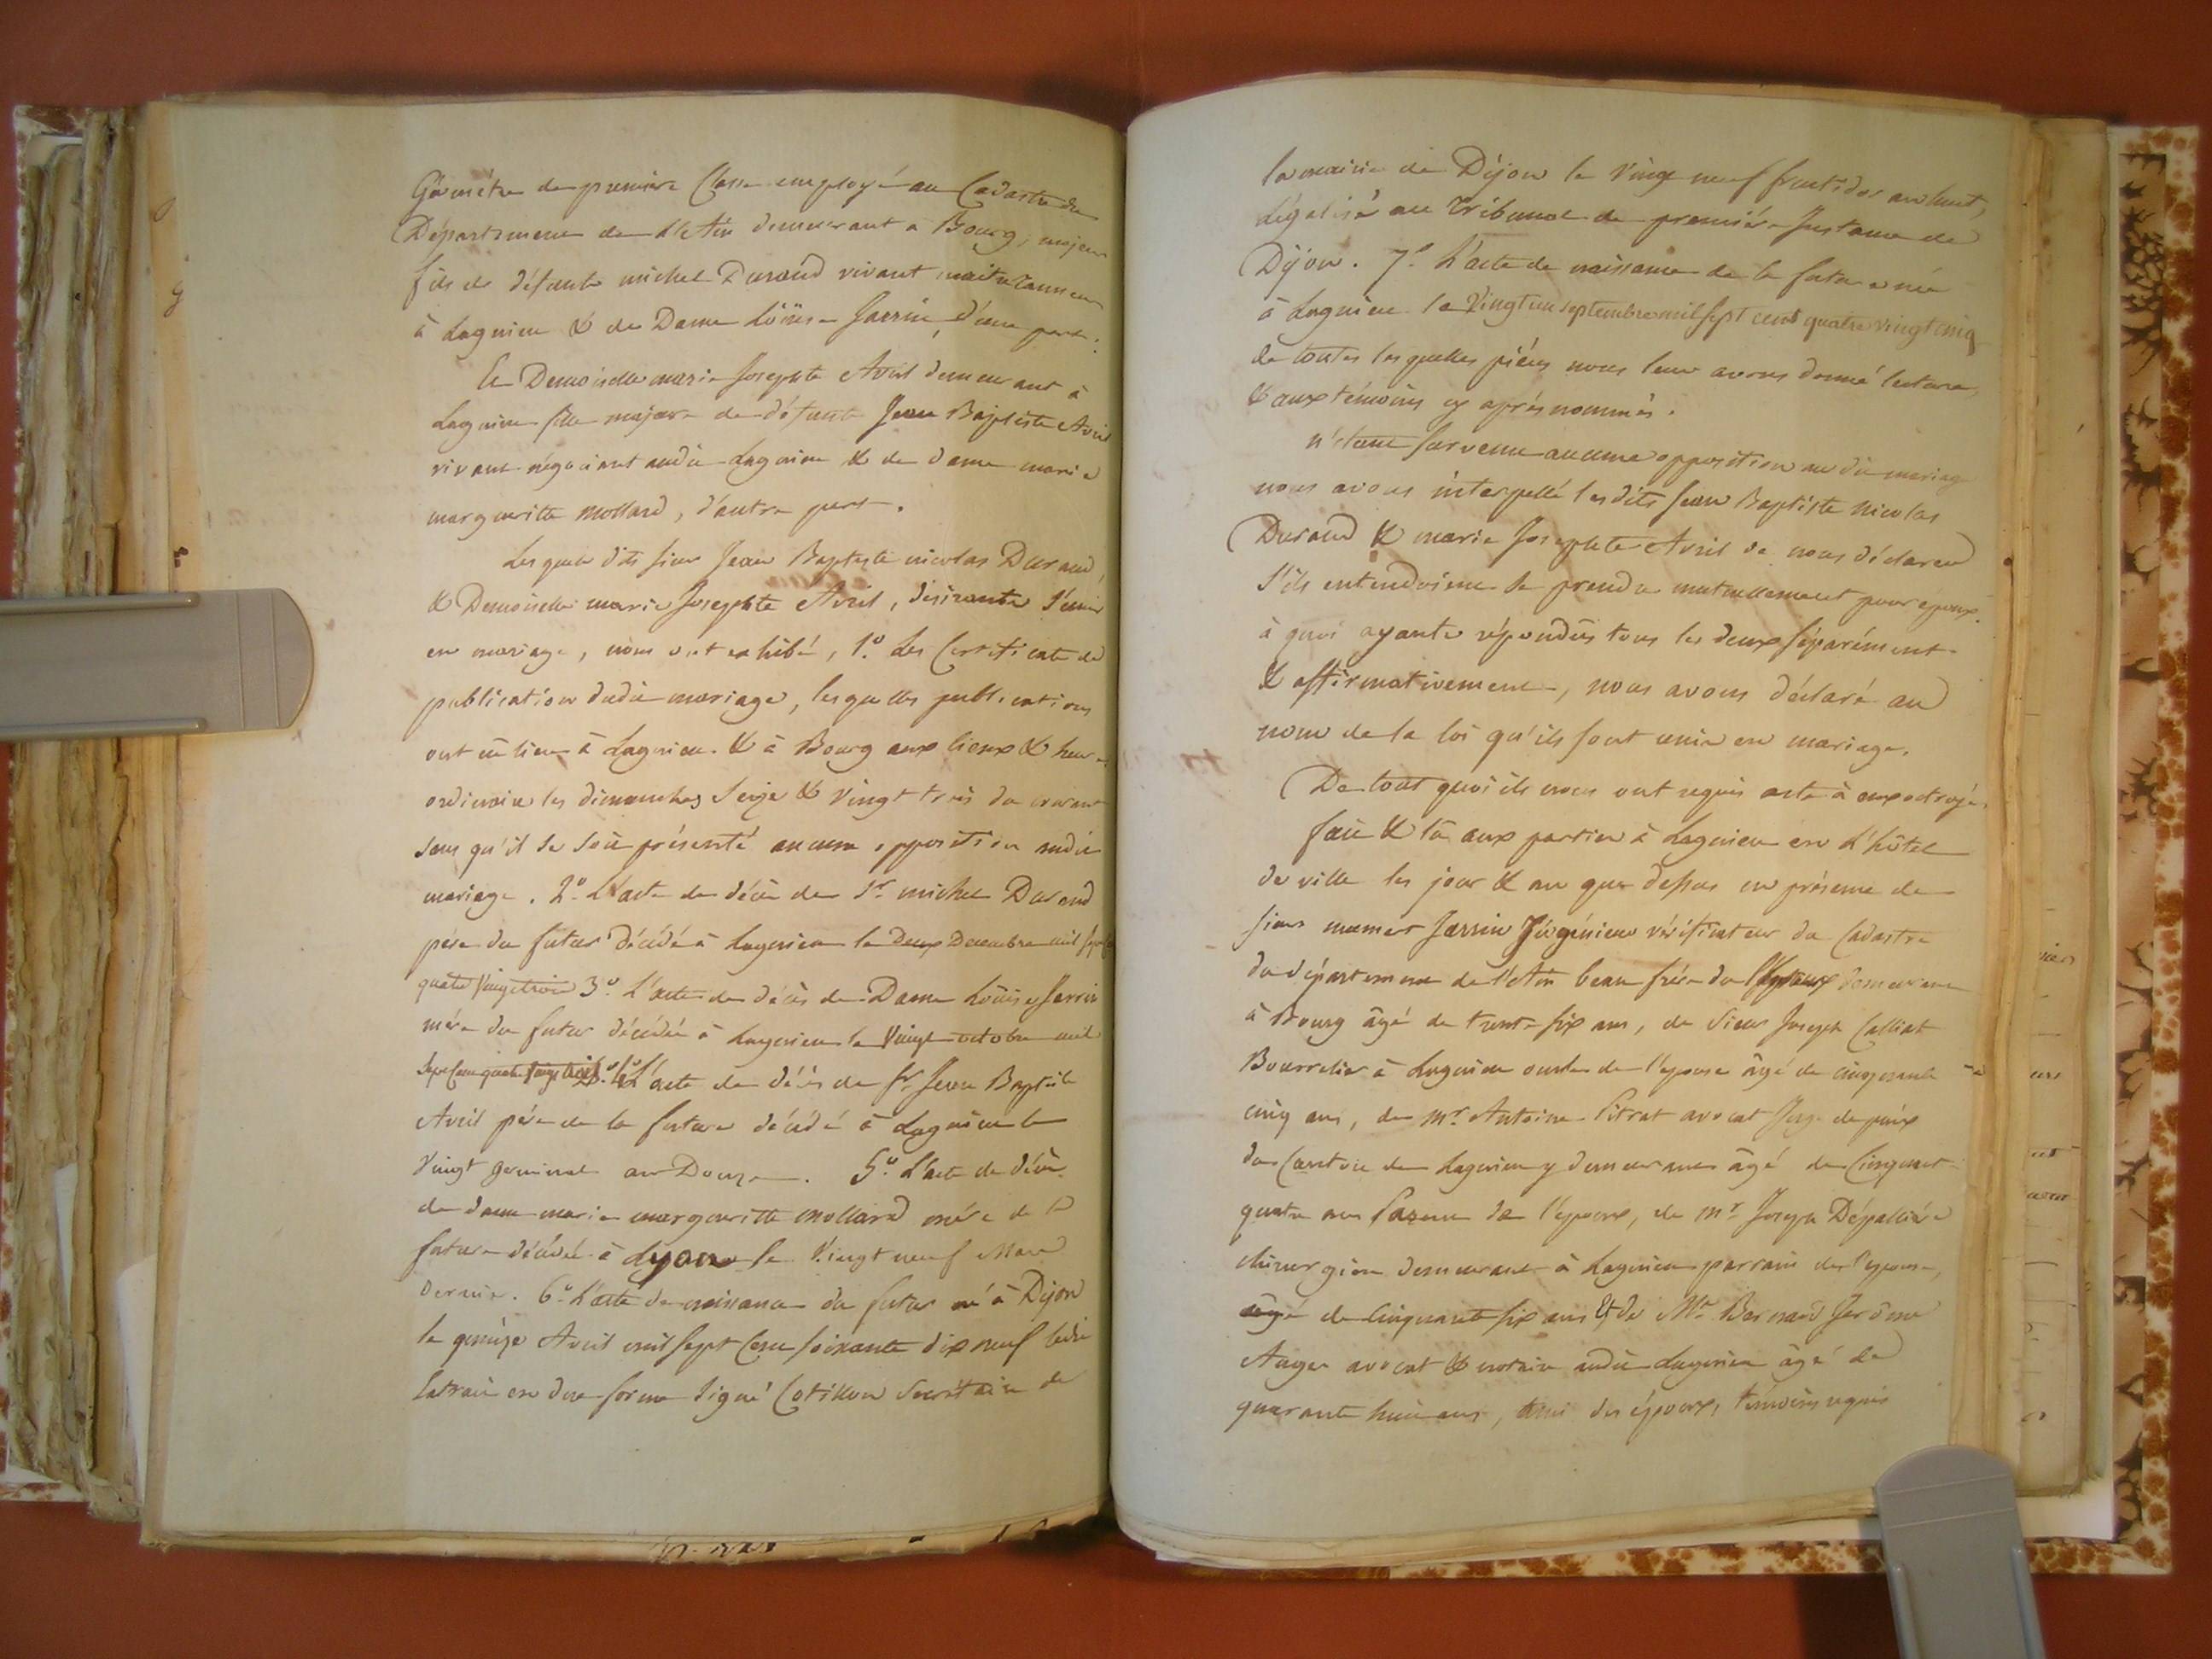 Géometre de premiere Classe employé au Cadastre du
Département de l'Ain demeurant à Bourg, majeur
fils de défunts michel Durand vivant maitre Tanneur
à Lagnieu & de Dame Loüise Jarrin, d'une part.
Et Demoiselle marie Josephte Avril demeurant à
Lagnieu fille majeure de défunts Jean Baptiste Avril
vivant négociant audit Lagnieu & de dame marie
margueritte Mollard, d'autre part.
Lesquels dits sieur Jean Baptiste nicolas Durand,
& Demoiselle marie Josephte Avril, désirants s'unir
en mariage, nous ont exhibé, 1º. Les Certificats de
publication dudit mariage, lesquelles publications
ont eu lieu à Lagnieu & à Bourg aux lieux & heures
ordinaires les dimanches Seize & vingt trois du courant
sans qu'il se soit présenté aucune opposition audit
mariage. 2º. L'acte de décès de Sr. michel Durand
père du futur décédé à Lagnieu le Deux Decembre mil sept
quatre vingt trois 3º. L'acte de décès de Dame Loüise Jarrin
mère du futur décédée à Lagnieu le Vingt octobre mil
Sept Cent quatre vingt 4º. L'acte de décès de Sr. Jean Baptiste
Avril père de la future décédé à Lagnieu le
Vingt germinal an Douze. 5º. L'acte de décès
de dame marie margueritte Mollard mère de la
future décédée à Lyon le Vingt neuf Mars
dernier. 6º. L'acte de naissance du futur né à Dijon
le quinze Avril mil sept Cent soixante dix neuf ledit
Extrait en due forme signé Cotillon Secrétaire de
la mairie de Dijon le Vingt neuf fructidor an huit,
Légalisé au Tribunal de première Instance de
Dijon. 7º. L'acte de naissance de la future née
à Lagnieu le Vingt un septembre mil sept cent quatre vingt cinq
de toutes lesquelles pièces nous leur avons donné lecture
& aux témoins cy après nommés.
n'étant survenue aucune opposition audit mariage
nous avons interpellé lesdits Jean Baptiste nicolas
Durand & marie Josephte Avril de nous déclarer
s'ils entendoient se prendre mutuellement pour époux.
à quoi ayants répondus tous les deux séparément
& affirmativement, nous avons déclaré au
nom de la loi qu'ils sont unis en mariage.
De tout quoi ils nous ont requis acte à eux octroyé.
fait & lû aux parties à Lagnieu en L'hôtel
de ville les jour & an que dessus en présence de
sieur Jarrin Ingénieur vérificateur du Cadastre
du département de l'Ain beau frère de l'époux demeurant
à Bourg âgé de trente six ans, de Sieur Joseph Calliat
Bourrelier à Lagnieu oncle de l'epouse âgé de cinquante
cinq ans, de mr. Antoine Litrat avocat Juge de paix
du Canton de Lagnieu y demeurant âgé de Cinquante
quatre ans Cousin de l'epoux, de mr. Joseph Dépallière
chirurgien demeurant à Lagnieu parrain de l'epouse,
âgé de Cinquante six ans & de Mr. Bernard Jerôme
Auger avocat & notaire audit Lagnieu âgé de
quarante huit ans, amis des époux, témoins requis